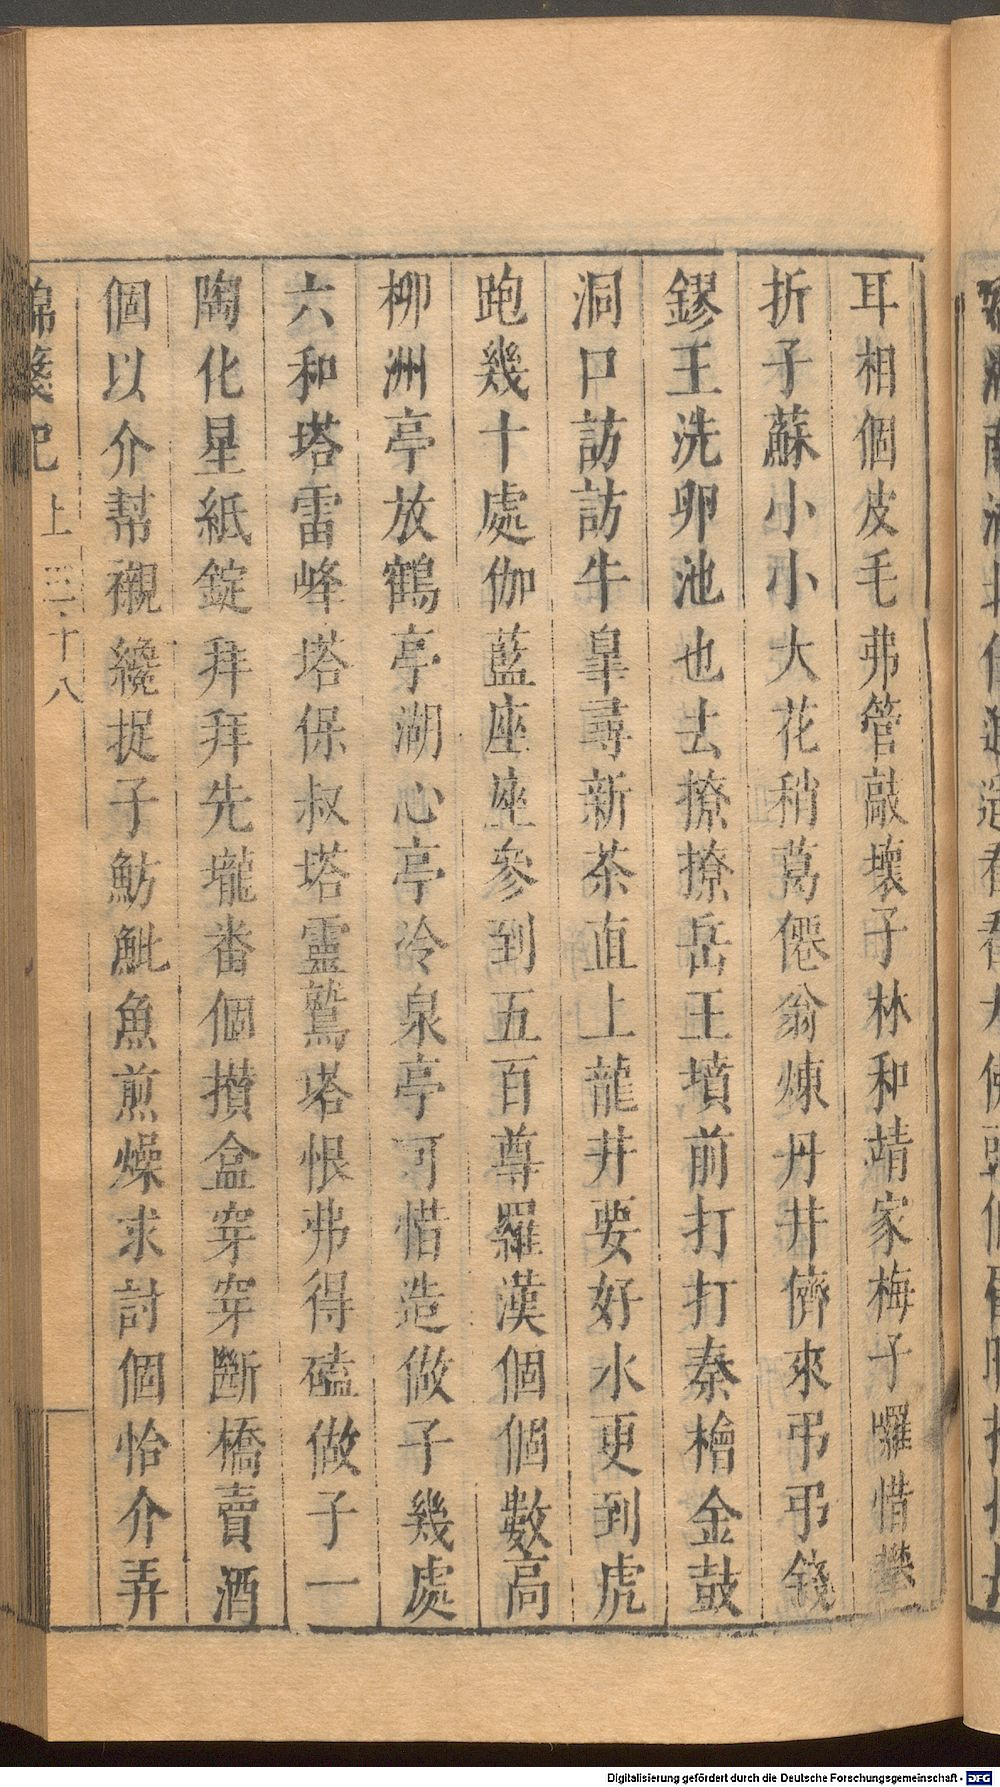 耳相個皮毛弗管敲壞子林和靖家梅子囉惜攀
折子蘇小小大花稍葛僊翁煉丹井儕來弔弔錢
鏐王洗卵池也去撩撩岳王墳前打打秦檜金鼓
洞口訪訪牛皐尋新茶直上龍井要好水更到虎
跑幾十處伽藍座座參到五百尊羅漢個個數高
柳洲亭放鶴亭湖心亭冷泉亭可惜造做子幾處
六和塔雷峰塔保叔塔靈鷲塔恨弗得磕做子一
陶化星紙錠拜拜先壠番個攢盒穿穿斷橋賣酒
個以介幫襯纔捉子魴魮魚煎燥求討個恰介弄
錦箋記 上 三十八
Digitalisierung gefördert durch die Deutsche Forschungsgemeinschaft - DFG